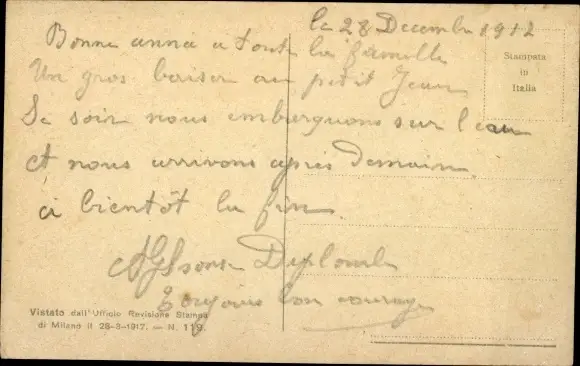 le 28 Decembre 1912
Bonne anné a toute la famille
Un gros baiser au petit Jean
Se soir nous emburquons sur l'eau
et nous arrivons après Demain
a bientôt la fin
Toujours bon courage
Stampata
in
Italia
Vistato dall'Ufficio Revisione Stampa
di Milano il 28-8-1917. — N. 119.